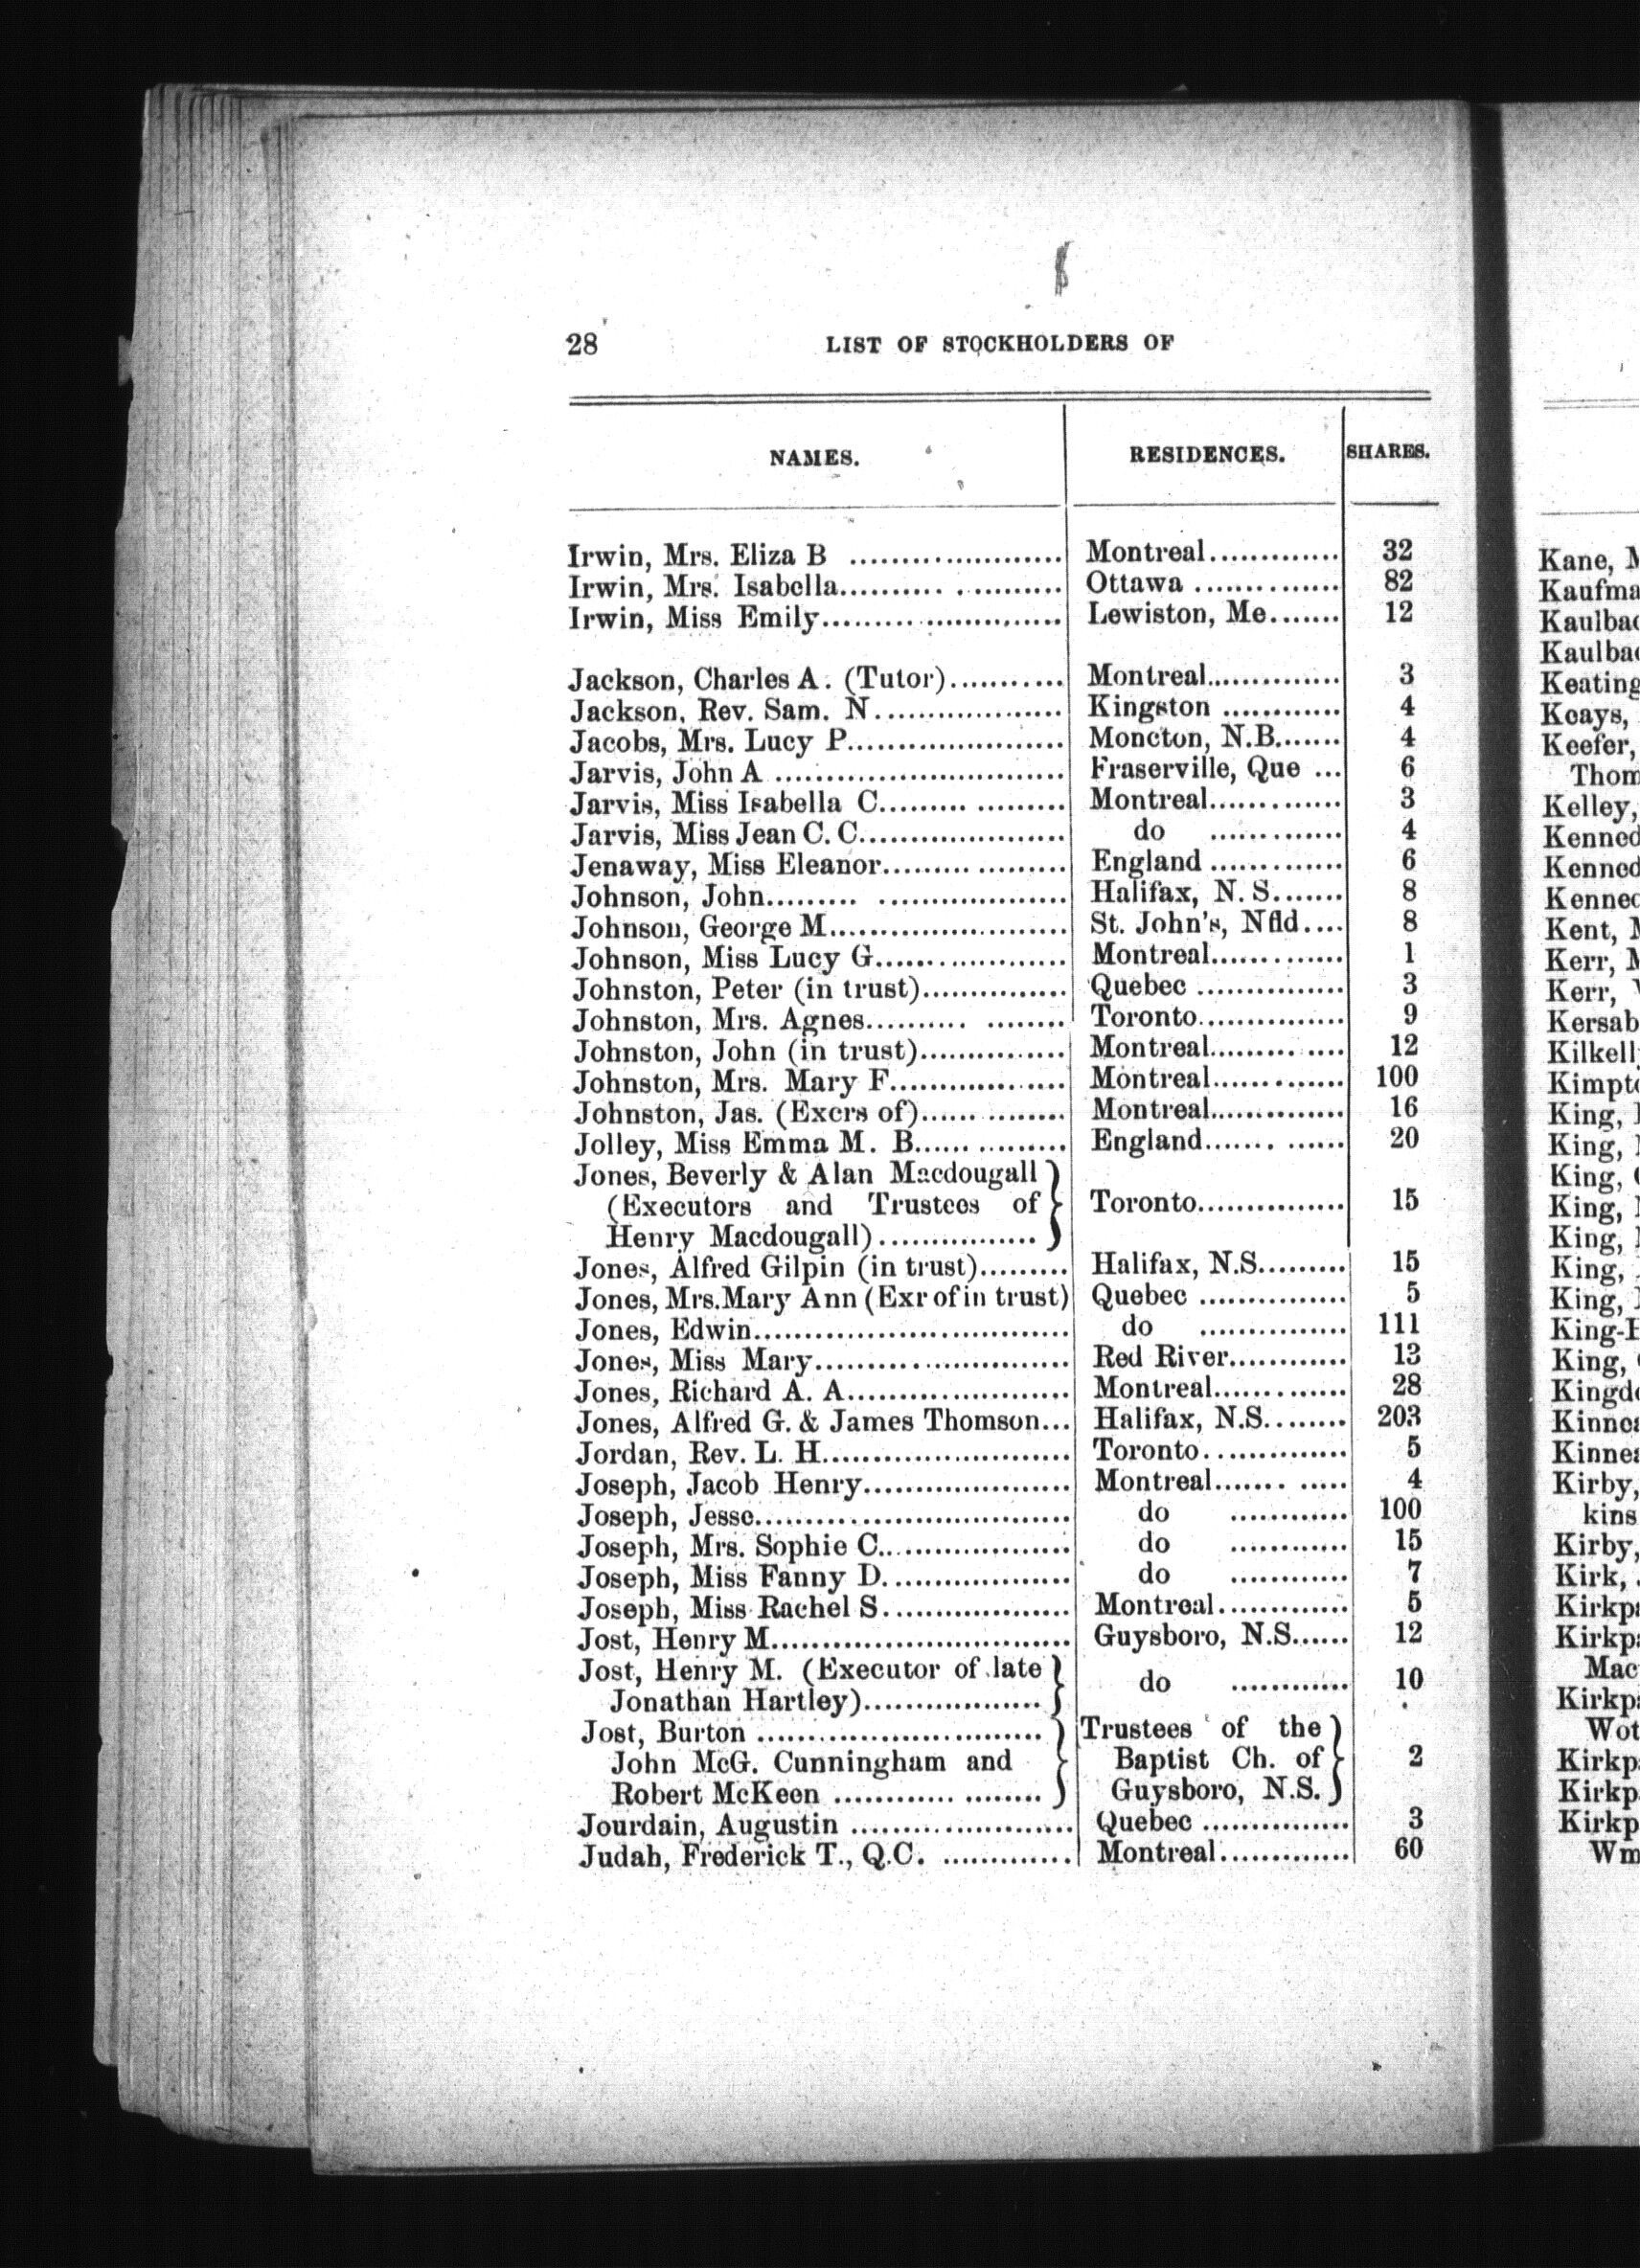 28 LIST OF STOCKHOLDERS OF
NAMES. RESIDENCES. SHARES.
Irwin, Mrs. Eliza B ..................... Montreal............. 32
Irwin, Mrs. Isabella..................... Ottawa .............. 82
Irwin, Miss Emily........................ Lewiston, Me....... 12
Jackson, Charles A. (Tutor)........... Montreal.............. 3
Jackson, Rev. Sam. N................... Kingston ............ 4
Jacobs, Mrs. Lucy P...................... Moncton, N.B....... 4
Jarvis, John A ............................. Fraserville, Que ... 6
Jarvis, Miss Isabella C.................. Montreal............. 3
Jarvis, Miss Jean C. C.................... do ............. 4
Jenaway, Miss Eleanor.................. England ............. 6
Johnson, John............................ Halifax, N. S....... 8
Johnson, George M........................ St. John's, Nfld.... 8
Johnson, Miss Lucy G................... Montreal............. 1
Johnston, Peter (in trust)............... Quebec ............... 3
Johnston, Mrs. Agnes.................. Toronto............... 9
Johnston, John (in trust)............... Montreal............. 12
Johnston, Mrs. Mary F.................. Montreal............. 100
Johnston, Jas. (Excrs of)............... Montreal.............. 16
Jolley, Miss Emma M. B............... England............. 20
Jones, Beverly & Alan Macdougall
(Executors and Trustees of Toronto............... 15
Henry Macdougall)................
Jones, Alfred Gilpin (in trust)......... Halifax, N.S......... 15
Jones, Mrs. Mary Ann (Exr of in trust) Quebec ............... 5
Jones, Edwin............................... do ............... 111
Jones, Miss Mary......................... Red River............ 13
Jones, Richard A. A...................... Montreal............. 28
Jones, Alfred G. & James Thomson... Halifax, N.S........ 203
Jordan, Rev. L. H......................... Toronto.............. 5
Joseph, Jacob Henry..................... Montreal............ 4
Joseph, Jesse............................... do ............ 100
Joseph, Mrs. Sophie C................... do ............ 15
Joseph, Miss Fanny D................... do ............ 7
Joseph, Miss Rachel S................... Montreal............. 5
Jost, Henry M.............................. Guysboro, N.S...... 12
Jost, Henry M. (Executor of late
Jonathan Hartley).................. do ............ 10
Jost, Burton ............................ Trustees of the
John McG. Cunningham and Baptist Ch. of 2
Robert McKeen .................... Guysboro, N.S.
Jourdain, Augustin ...................... Quebec ............... 3
Judah, Frederick T., Q.C. ............. Montreal............. 60
Kane,
Keefer,
Kelley,
Kent,
Kerr,
Kerr,
King,
King,
King,
King,
King,
King,
King,
King,
Kirby,
Kirby,
Kirk,